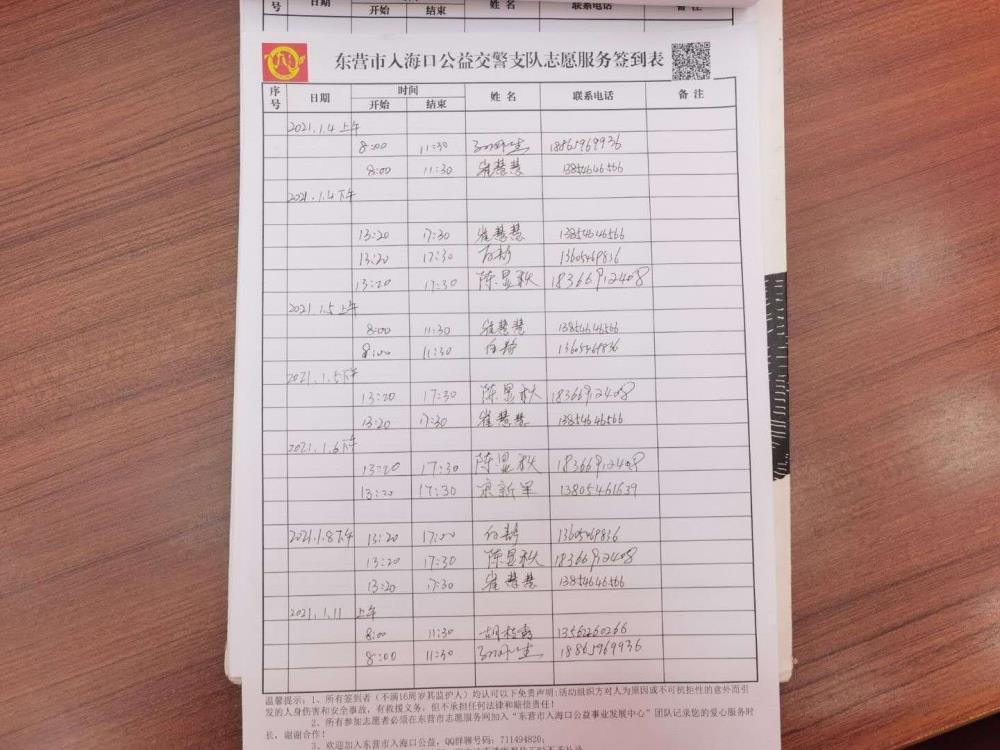 日期 开始 结束 姓 名 联系电话 备 注
号
东营市入海口公益交警支队志愿服务签到表
序号 日期 时间 姓 名 联系电话 备 注
开始 结束
2021.1.4上午
8:00 11:30 18865969936
8:00 11:30 崔慧慧 13854646566
2021.1.4下午
13:20 17:30 崔慧慧 13854646566
13:20 17:30 白静 13605469836
13:20 17:30 陈显秋 18366912408
2021.1.5上午
8:00 11:30 崔慧慧 13854646566
8:00 11:30 白静 13605469836
2021.1.5下午
13:20 17:30 陈显秋 18366912408
13:20 17:30 崔慧慧 13854646566
2021.1.6下午
13:20 17:30 陈显秋 18366912408
13:20 17:30 13805461639
2021.1.8下午 13:20 17:00 白静 13605469836
13:20 17:30 陈显秋 18366912408
13:20 17:30 崔慧慧 13854646566
2021.1.11 上午
8:00 11:30 13562260266
8:00 11:30 18865969936
温馨提示：1、所有签到者（不满16周岁其监护人）均认可以下免责声明:活动组织方对人为原因或不可抗拒性的意外而引
发的人身伤害和安全事故，有救援义务，但不承担任何法律和赔偿责任！
2、所有参加志愿者必须在东营市志愿服务网加入“东营市入海口公益事业发展中心”团队记录您的爱心服务时
长，谢谢合作！
3、欢迎加入东营市入海口公益，QQ群聊号码：711494820；